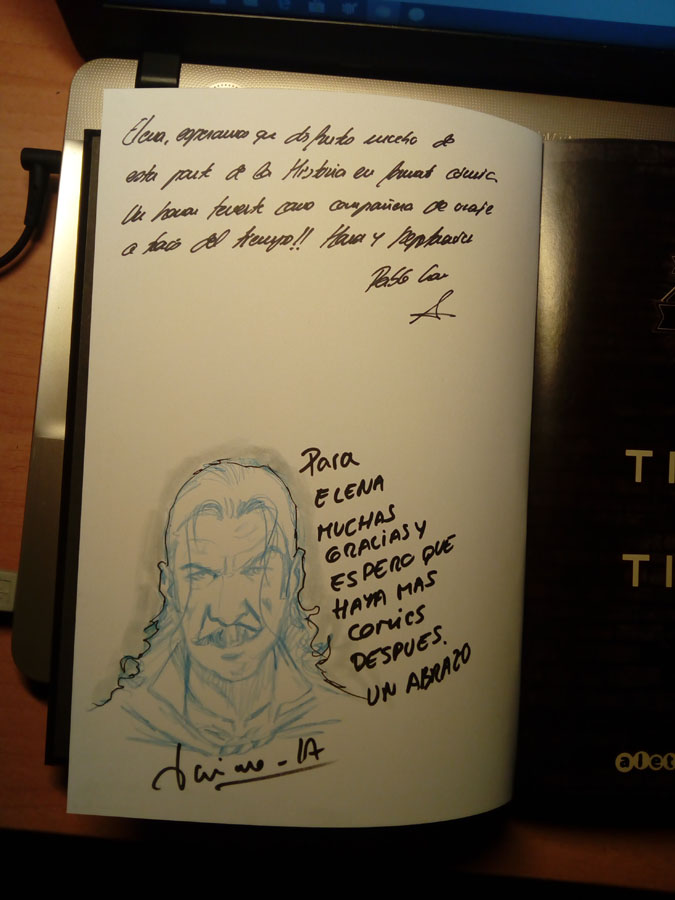 Elena, esperamos que disfrutes mucho de
esta parte de la Historia en format cómic.
Un honor tenerte como compañera de viaje
a través del tiempo!! Hora y
Pablo
Para
ELENA
MUCHAS
GRACIAS Y
ESPERO QUE
HAYA MAS
COMICS
DESPUES.
UN ABRAZO
TI
TI
alet